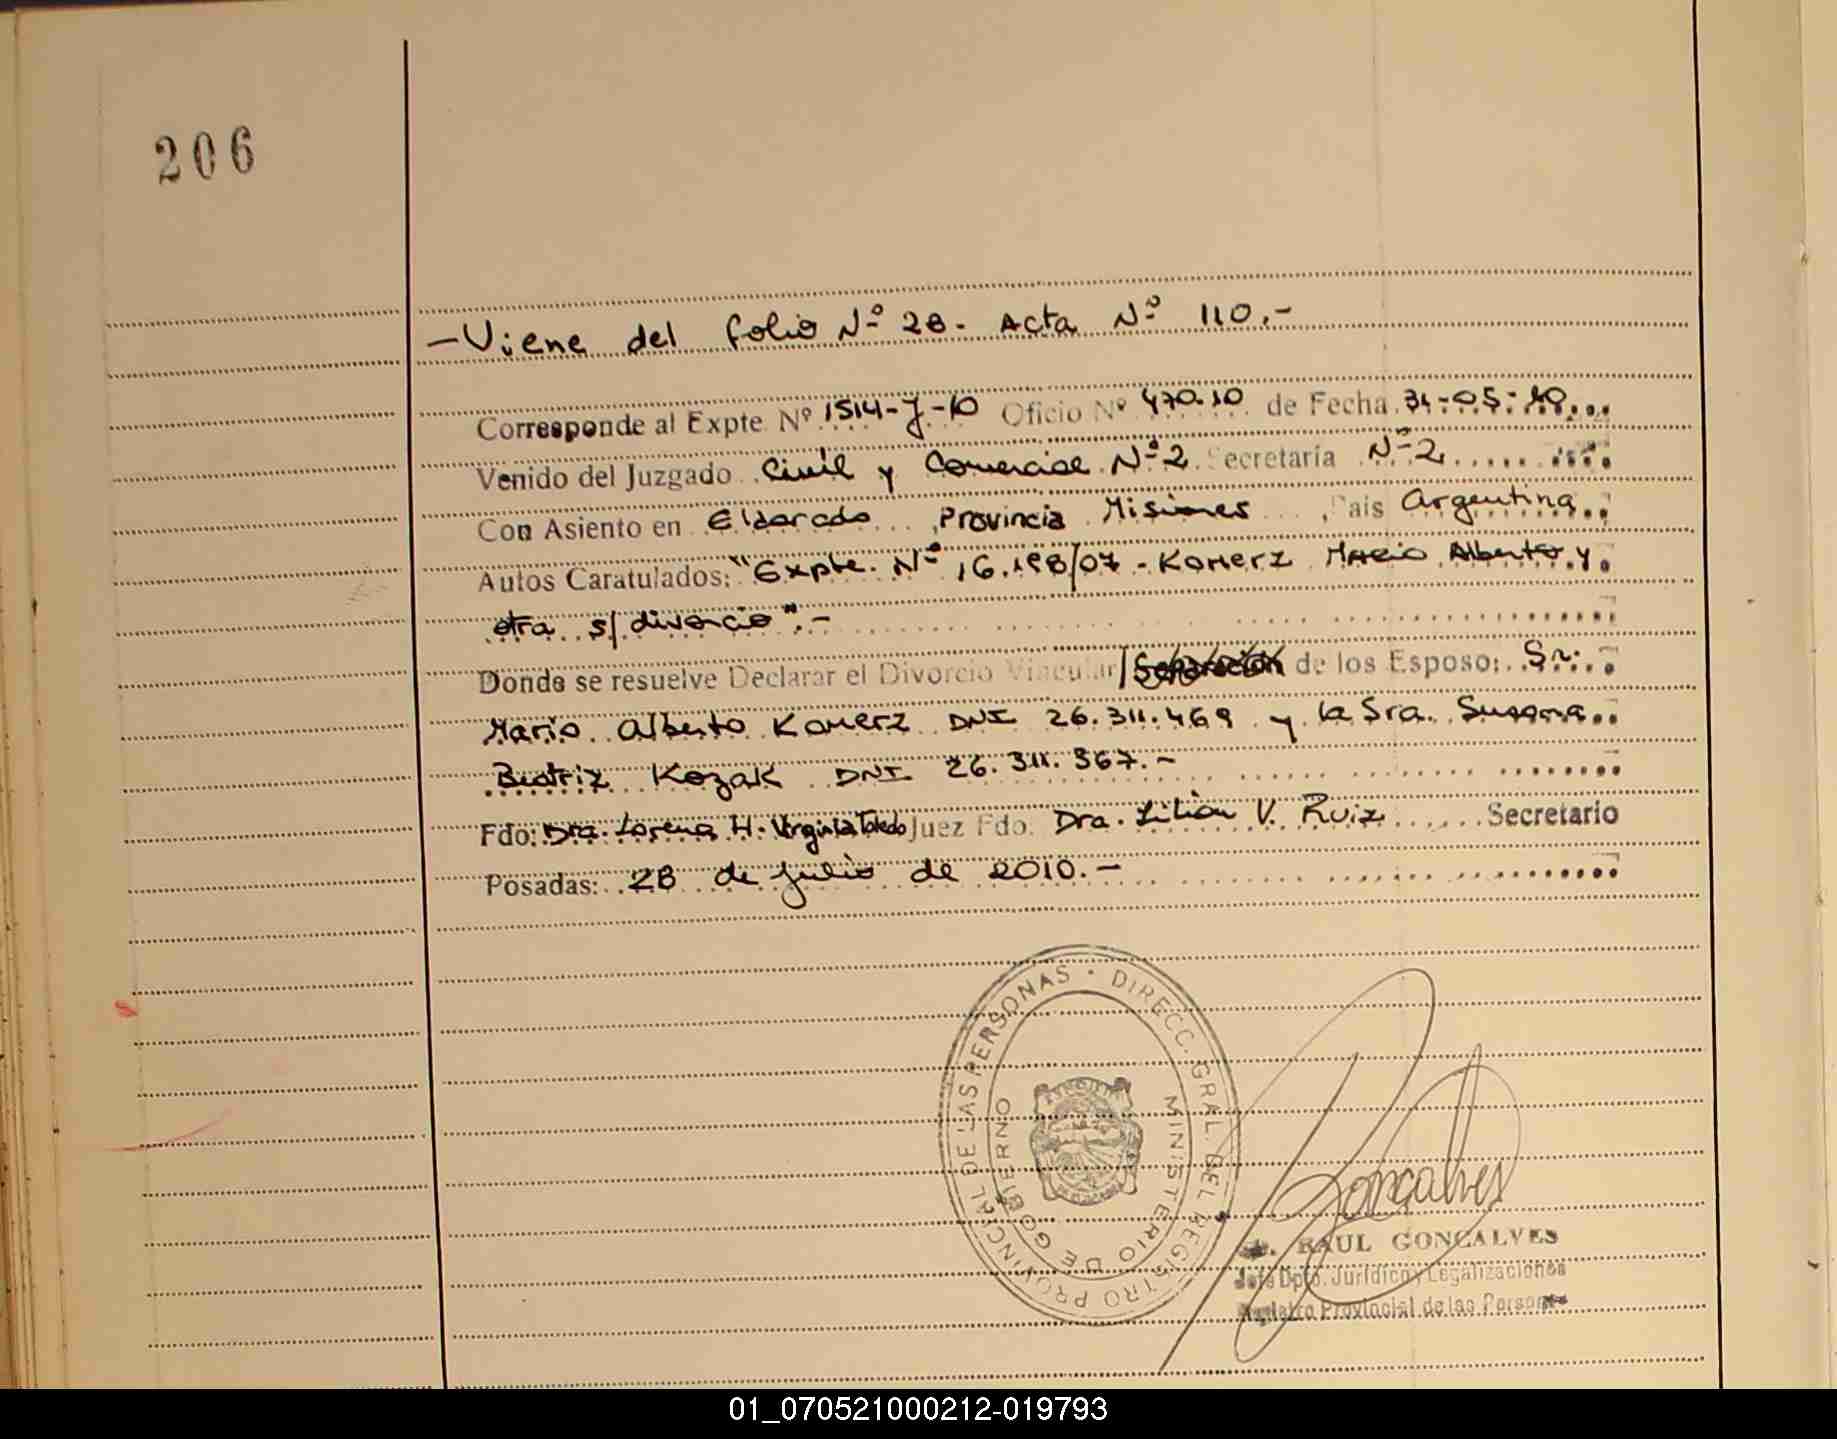 206
—Viene del folio Nº 28. Acta Nº 110.-
Corresponde al Expte Nº 1514-J-10 Oficio Nº 470.10 de Fecha 31-05-10
Venido del Juzgado Civil y Comercial Nº 2 Secretaría Nº 2
Con Asiento en Eldorado, Provincia Misiones, Pais Argentina
Autos Caratulados: "Expte. Nº 16.198/07 - Komerz Mario Alberto y
otra s/ divorcio".-
Donde se resuelve Declarar el Divorcio Vincular/Separación de los Esposo: Sr.
Mario Alberto Komerz DNI 26.311.469 y la Sra. Susana
Beatriz Kozak DNI 26.311.367.-
Fdo: Dra. Lorena H. Virginia Toledo Juez Fdo. Dra. Lilian V. Ruiz Secretario
Posadas: 28 de julio de 2010.-
DIRECC. GRAL. DEL REGISTRO PROVINCIAL DE LAS PERSONAS
MINISTERIO DE GOBIERNO
Gonçalves
RAUL GONCALVES
Jefe Dpto. Jurídico y Legalizaciones
Registro Provincial de las Personas
01_070521000212-019793